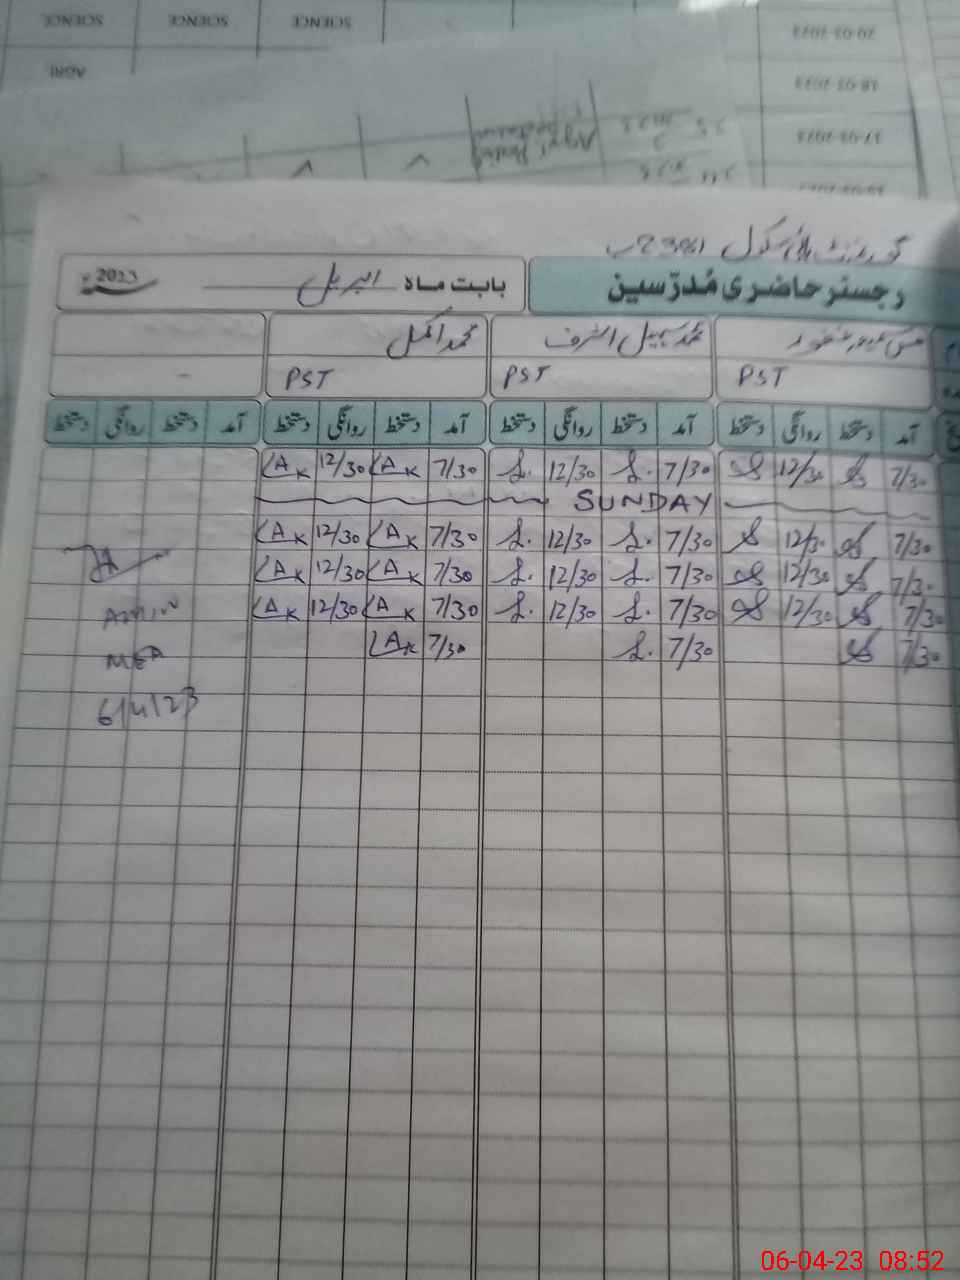 گورنمنٹ ہائی سکول
رجسٹر حاضری مُدرّسین بابت ماہ اپریل 2023ء
محمد سہیل اشرف محمد اکمل
PST PST PST
آمد دستخط روانگی دستخط آمد دستخط روانگی دستخط آمد دستخط روانگی دستخط آمد دستخط روانگی دستخط
7/30 12/30 7/30 12/30 7/30 AK 12/30 AK
SUNDAY
7/30 12/30 7/30 12/30 7/30 AK 12/30 AK
7/30 12/30 7/30 12/30 7/30 AK 12/30 AK
7/30 12/30 7/30 12/30 7/30 AK 12/30 AK
7/30 7/30 7/30 AK
MEA
6/4/23
20-03-2023 SCIENCE SCIENCE SCIENCE
18-03-2023 AGRI
17-03-2023
06-04-23 08:52